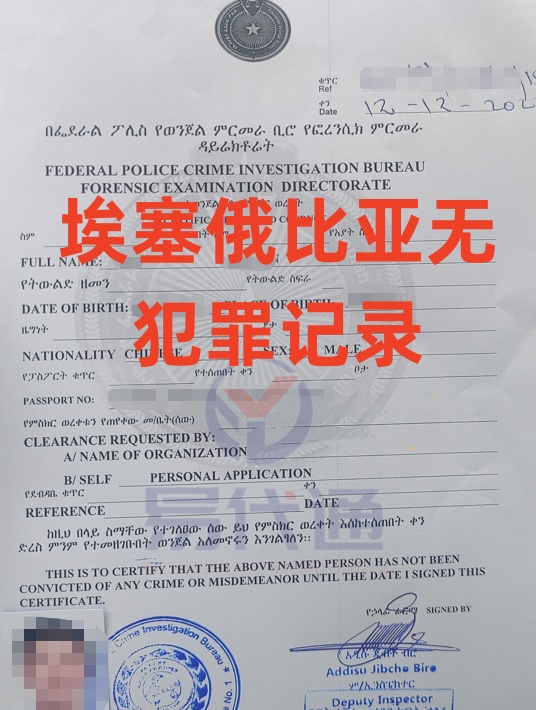 ቁጥር
Ref
ቀን
Date 12-12-202
በፌደራል ፖሊስ የወንጀል ምርመራ ቢሮ የፎረንሲክ ምርመራ
ዳይሬክቶሬት
FEDERAL POLICE CRIME INVESTIGATION BUREAU
FORENSIC EXAMINATION DIRECTORATE
ስም
埃塞俄比亚无
FULL NAME:
የትውልድ ዘመን የትውልድ ስፍራ
DATE OF BIRTH: PLACE OF BIRTH:
ዜግነት ፆታ
犯罪记录
NATIONALITY CHINESE SEX: MALE
የፓስፖርት ቁጥር የተሰጠበት ቀን ቦታ
PASSPORT NO:
የምስክር ወረቀቱን የጠየቀው መ/ቤት(ሰው)
CLEARANCE REQUESTED BY:
A/ NAME OF ORGANIZATION
B/ SELF PERSONAL APPLICATION
የደብዳቤ ቁጥር ቀን
REFERENCE DATE
易代通
ከዚህ በላይ ስማቸው የተገለፀው ሰው ይህ የምስክር ወረቀት እስከተሰጠበት ቀን
ድረስ ምንም የተመዘገበበት ወንጀል አለመኖሩን እንገልፃለን።
THIS IS TO CERTIFY THAT THE ABOVE NAMED PERSON HAS NOT BEEN
CONVICTED OF ANY CRIME OR MISDEMEANOR UNTIL THE DATE I SIGNED THIS
CERTIFICATE.
የኃላፊ ፊርማ SIGNED BY
Crime Investigation Bureau
አዲሱ ጂብቾ ብሮ
Addisu Jibcho Biro
ም/ኢንስፔክተር
Deputy Inspector